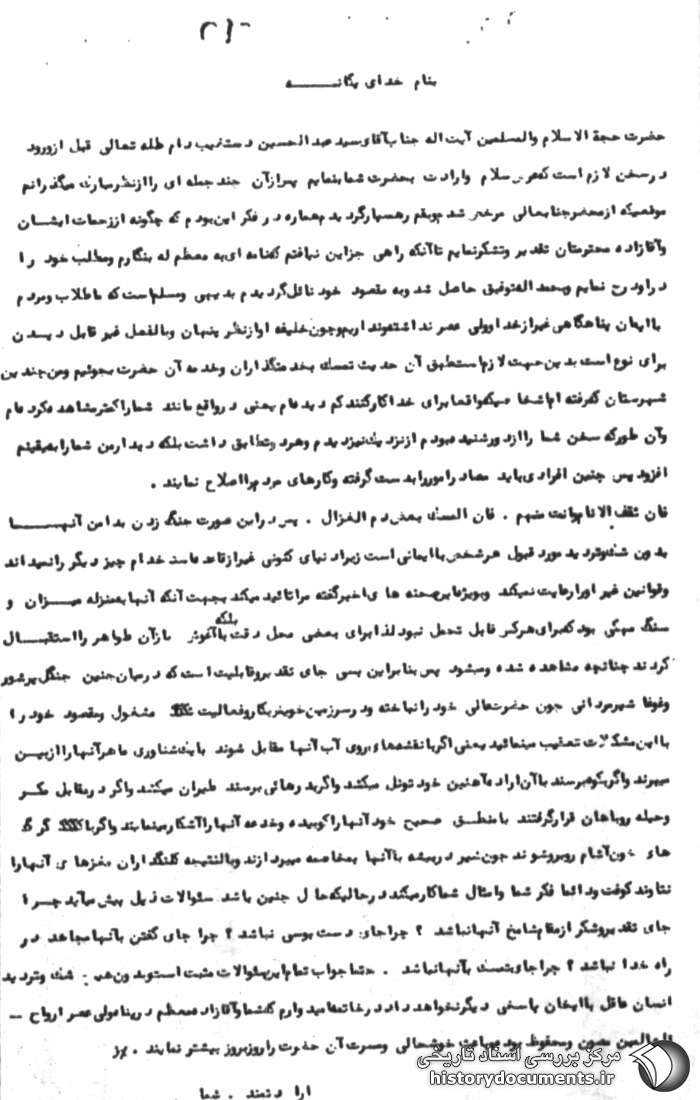 ۲۱۰
بنام خدای یگانـــــه
حضرت حجة الاسلام والمسلمین آیت اله جناب آقای سید عبدالحسین دستغیب دام ظله تعالی قبل ازورود
درسخن لازم است که عرض سلام وارادت بحضرت شما بنمایم پس ازآن چند جمله ای را ازنظر مبارک میگذرانم
موقعیکه ازمحضر جنابعالی مرخص شدم وبقم رهسپار گردیدم همواره در فکر این بودم که چگونه اززحمات ایشان
وآقازاده محترمتان تقدیر وتشکر نمایم تا آنکه راهی جز این نیافتم که نامه ای به معظم له بنگارم ومطلب خود را
دراو درج نمایم وبحمد اله توفیق حاصل شد وبه مقصود خود نائل گردیدم بدیهی ومسلم است که ما طلاب ومردم
باایمان پناهگاهی غیر از خدا وولی عصر نداشته ونداریم وچون خلیفه او از نظر پنهان وبالفعل غیر قابل دیدن
برای نوع است بدین جهت لازم است طبق آن حدیث تمسک بخدمتگذاران وخدمه آن حضرت بجوئیم ومن چندین
شهرستان که رفته ام اشخاصیکه واقعا برای خدا کار کنند کم دیده ام یعنی در واقع مانند شما را کمتر مشاهده کرده ام
وآن طور که سخن شما را از دور شنیده بودم از نزدیک نیز دیدم وهردو تطابق داشت بلکه دیدار من شما را به یقینم
افزود پس چنین افرادی باید مصادر امور را بدست گرفته وکارهای مردم را اصلاح نمایند .
فان تفق الانام وانت منهم . فان المسک بعض دم الغزال . پس دراین صورت چنگ زدن بدامن آنهـــا
بدون شک وتردید مورد قبول هر شخص باایمانی است زیرا دنیای کنونی غیر از قاعده فاسد خدام چیز دیگر را نمیداند
وقوانین غیر او را رعایت نمیکند وبویژه این صحنه های اخیر گفته مرا تائید میکند بجهت آنکه آنها به منزله میــزان و
سنگ مهکی بود که برای هرکس قابل تحمل نبود لذا برای بعضی محل دقت بلکه باآغوش باز آن ظواهر را استقبـال
کردند چنانچه مشاهده شده ومیشود پس بنابراین بسی جای تقدیر وقابلیت است که درمیان چنین جنگل پرشور
وغوغا شیر مردانی چون حضرتعالی خود را نباخته ودر سرزمین خویش بکار وفعالیت مشغول ومقصود خود را
بااین مشکلات تعقیب مینمائید یعنی اگر با نقشه ها بروی آب آنها مقابل شوند بایک شناوری ماهر آنها را از بیـن
میبرند واگر بکوه برسند باآن اراده آهنین خود تونل میکشد واگر بدره هائی برسند طیران میکند واگر درمقابل مکـر
وحیله روباهان قرار گرفتند بامنطـق صحیح خود آنها را کوبیده وخدعه آنها را آشکار مینمایند واگر با گرگ
های خون آشام روبرو شوند چون شیر دربیشه باآنها بمخاصمه میپردازند وبالنتیجه کلنگداران مغزهای آنها را
نتاوند کوفت ودائما فکر شما وامثال شما کار میکند درحالیکه حال چنین باشد سئوالات ذیل پیش میآید چــرا
جای تقدیر وشکر از مقام شامخ آنها نباشد ؟ چرا جای دست بوسی نباشد ؟ چرا جای گفتن بآنها مجاهد در
راه خدا نباشد ؟ چرا جای تمسک بآنها نباشد . حتما جواب تمام این سئوالات مثبت است وبدون هیچ شک وتردید
انسان عاقل باایمان پاسخی دیگر نخواهد داد درخاتمه امیدوارم که شما وآقازاده معظم درپناه ولی عصر ارواح -
العالمین مصون ومحفوظ بوده وباعث خوشحالی ومسرت آن حضرت را روزبروز بیشتر نمایند .
ارادتمند . شما
مرکز بررسی اسناد تاریخی
historydocuments.ir